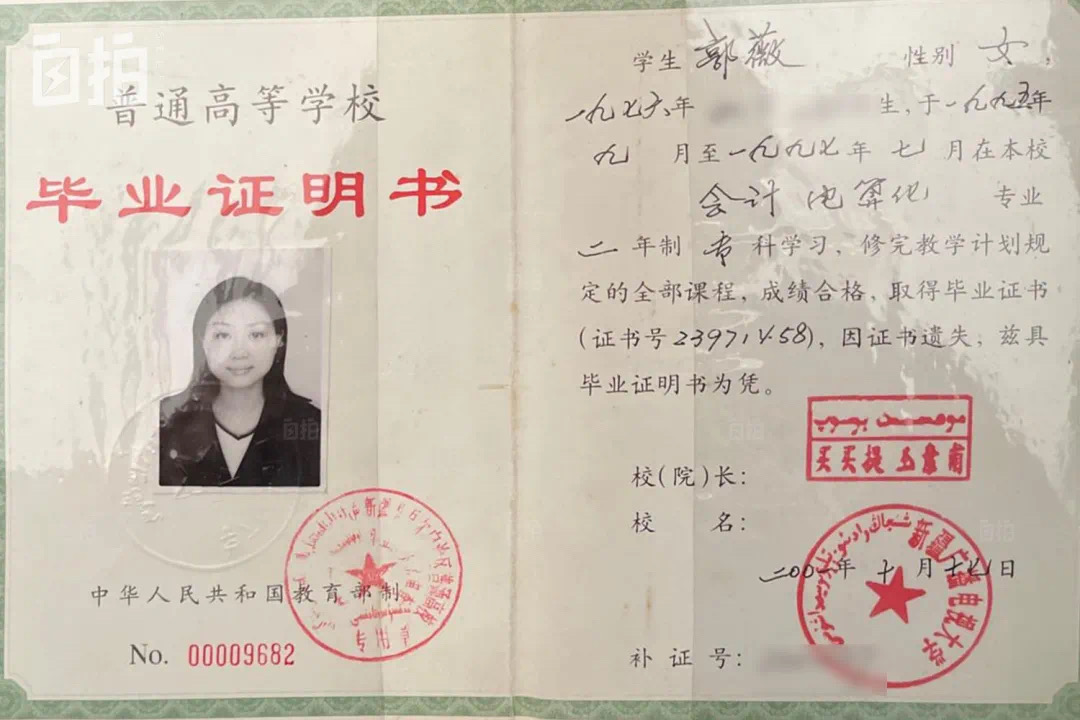 自拍
普通高等学校
毕业证明书
中华人民共和国教育部制
No. 00009682
学生 郭薇 性别 女,
一九七六年 生,于一九九五年
九 月至一九九七年 七 月在本校
会计电算化 专业
二 年制 专 科学习,修完教学计划规
定的全部课程,成绩合格,取得毕业证书
(证书号23971458),因证书遗失,兹具
毕业证明书为凭。
校(院)长:
买买提玉素甫
校 名:
新疆广播电视大学
二00一年 十 月 十七日
补 证 号: